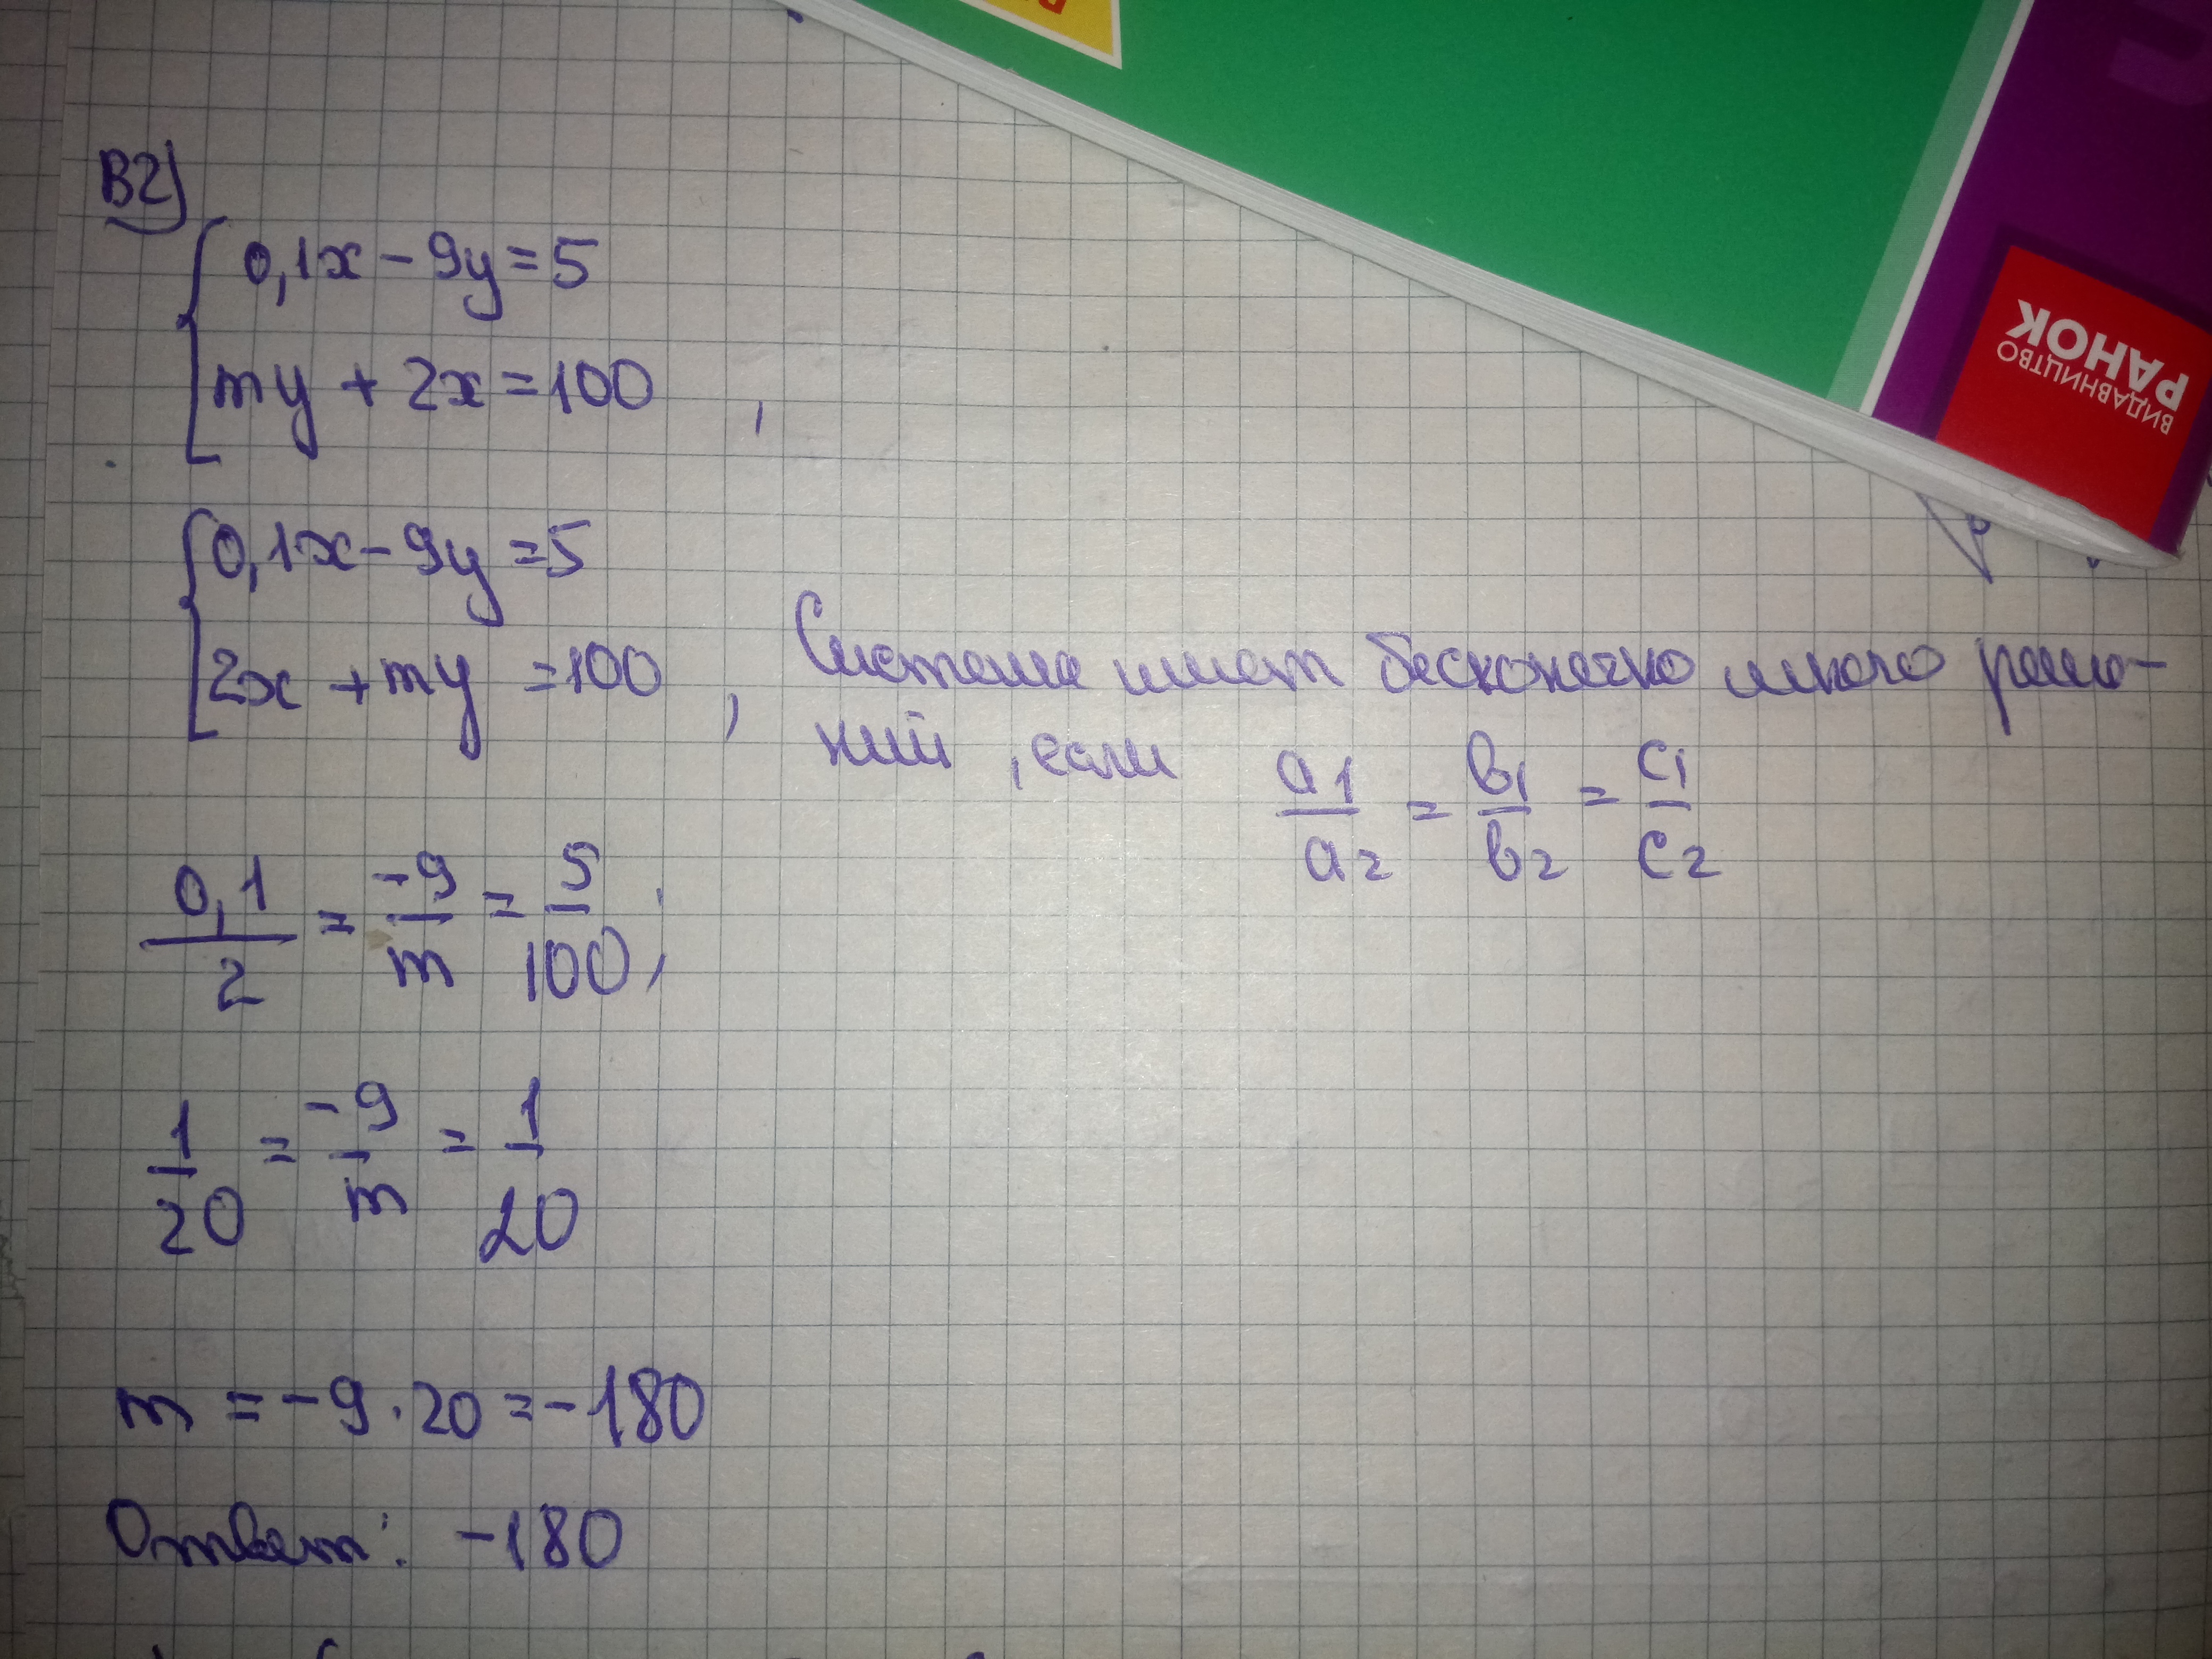 В2)
0,1x - 9y = 5
my + 2x = 100 ,
0,1x - 9y = 5
2x + my = 100 , Система имеет бесконечно много реше-
ний , если a1/a2 = b1/b2 = c1/c2
0,1/2 = -9/m = 5/100 ;
1/20 = -9/m = 1/20
m = -9 · 20 = -180
Ответ: -180
ВИДАВНИЦТВО
РАНОК